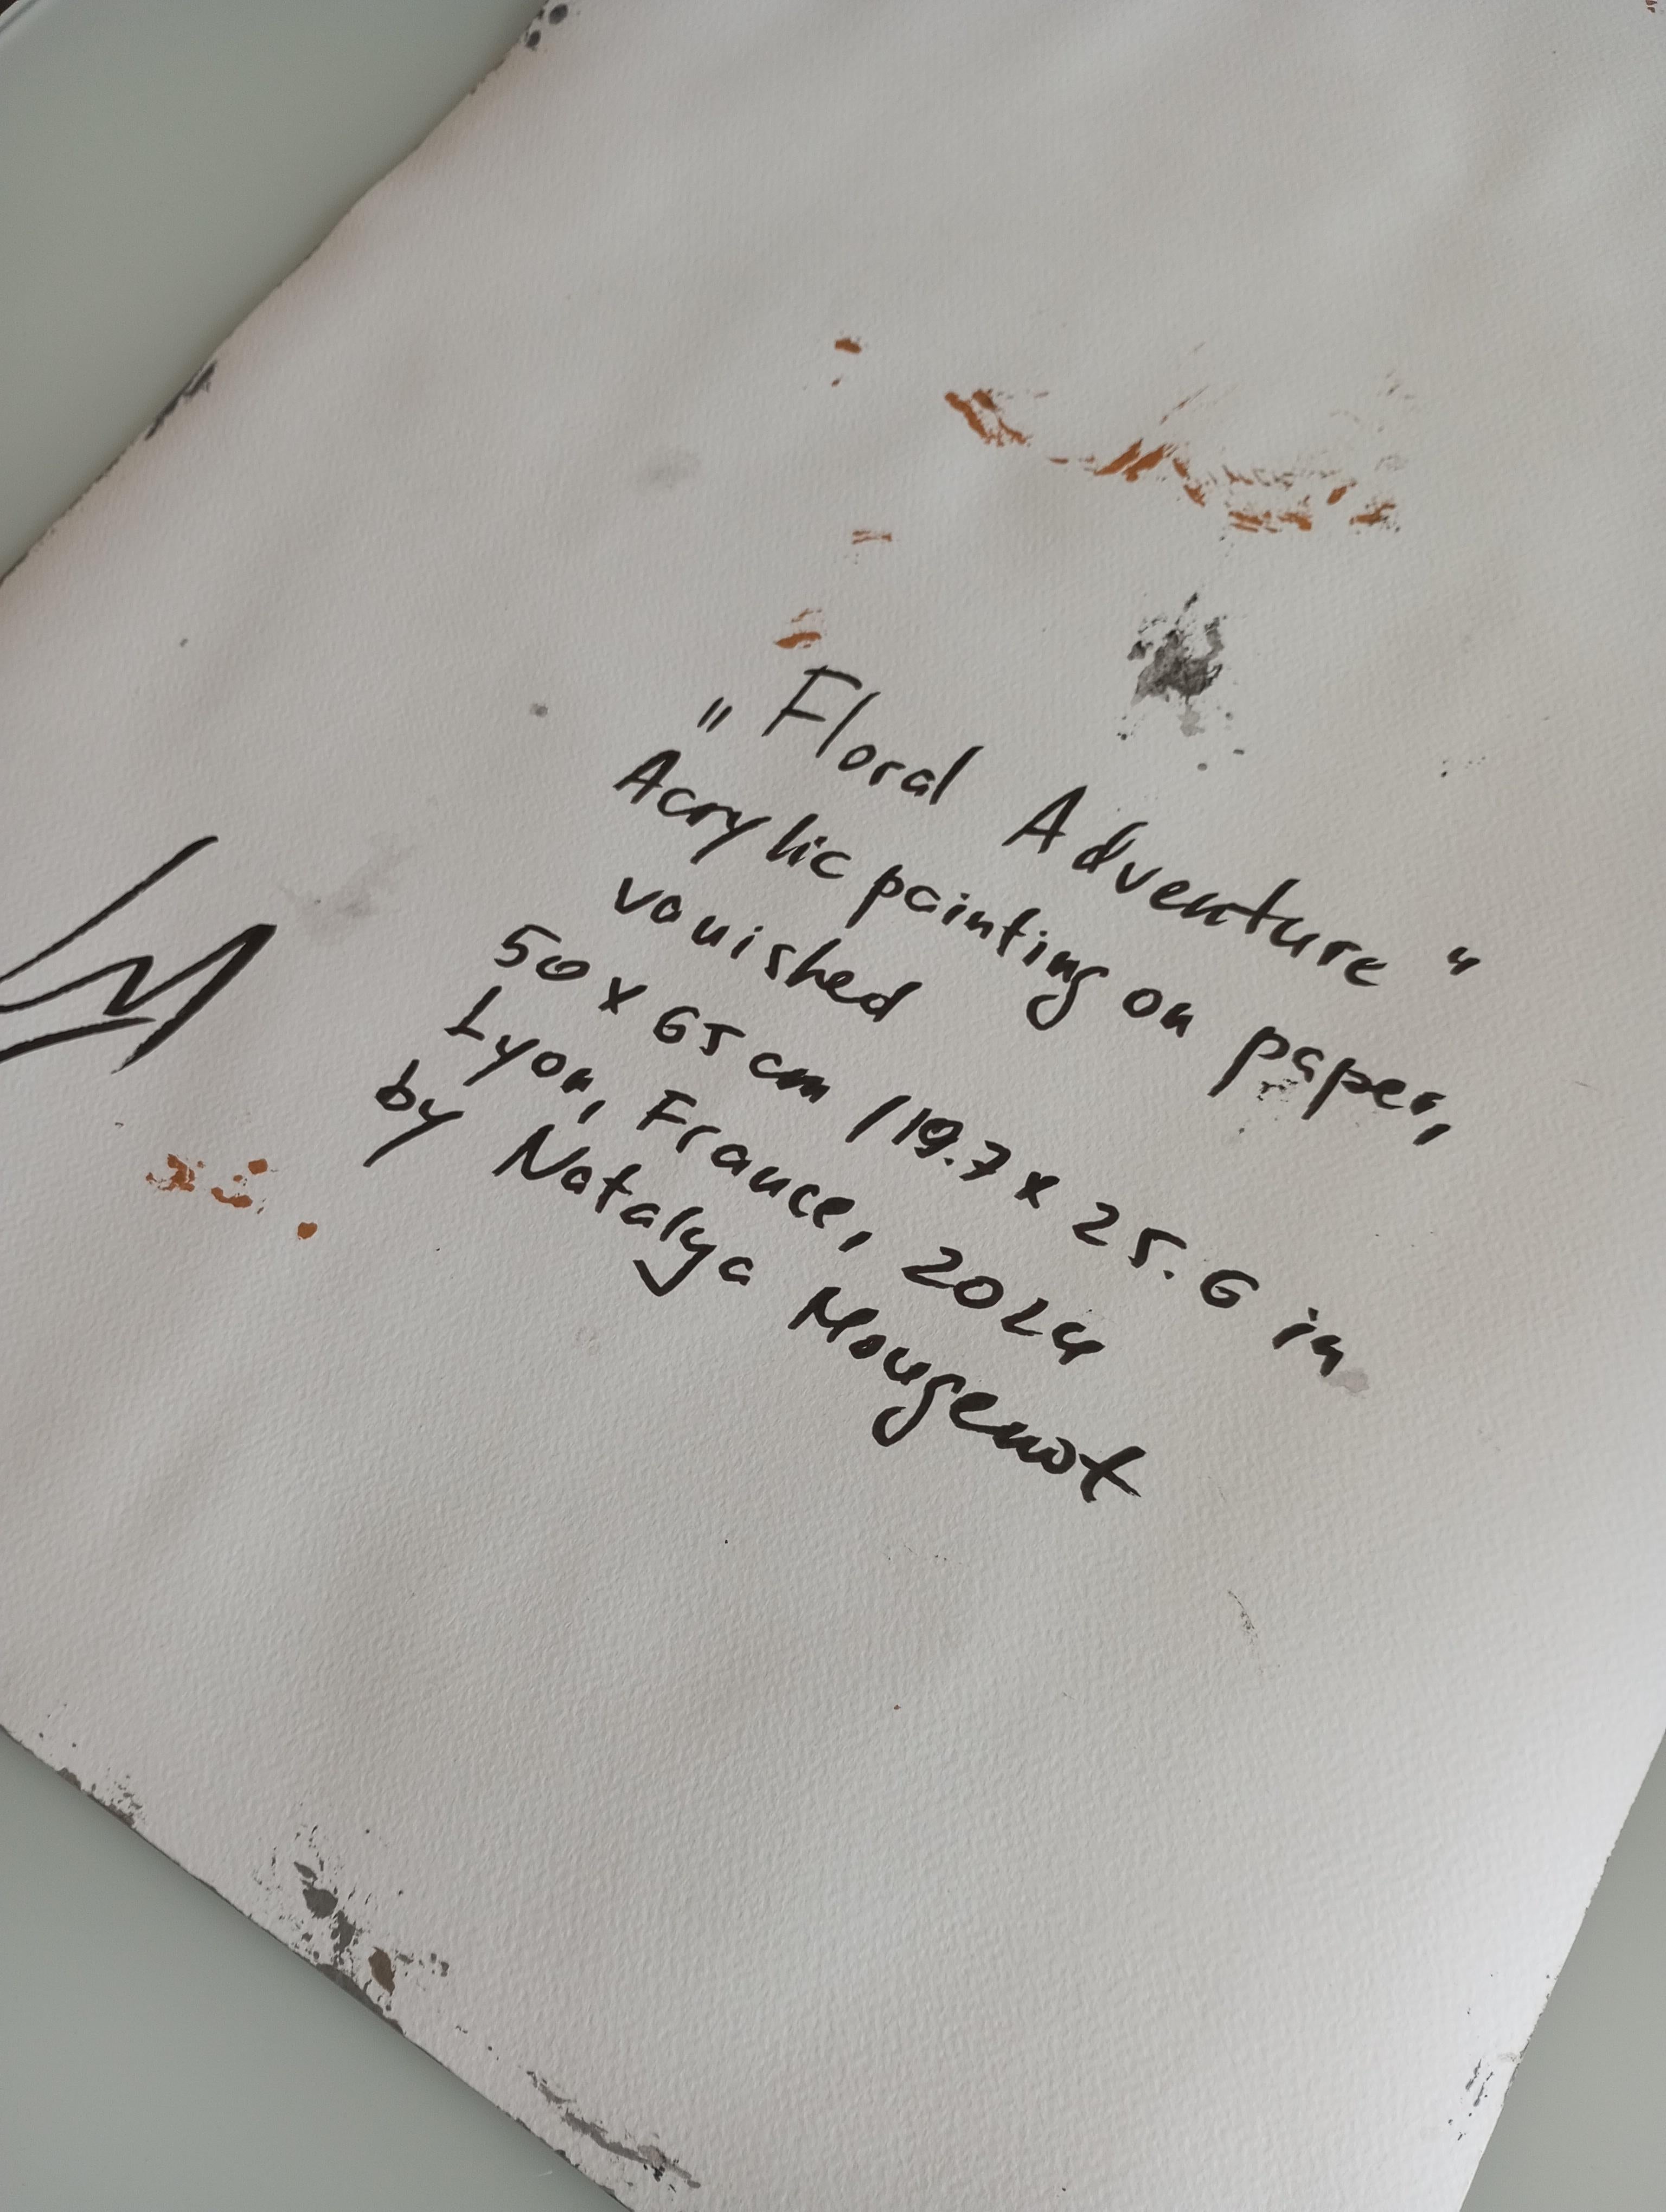 „Floral Adventure“
Acrylic painting on paper,
vanished
50 x 65 cm / 19.7 x 25.6 in
Lyon, France, 2024
by Natalya Mougenot